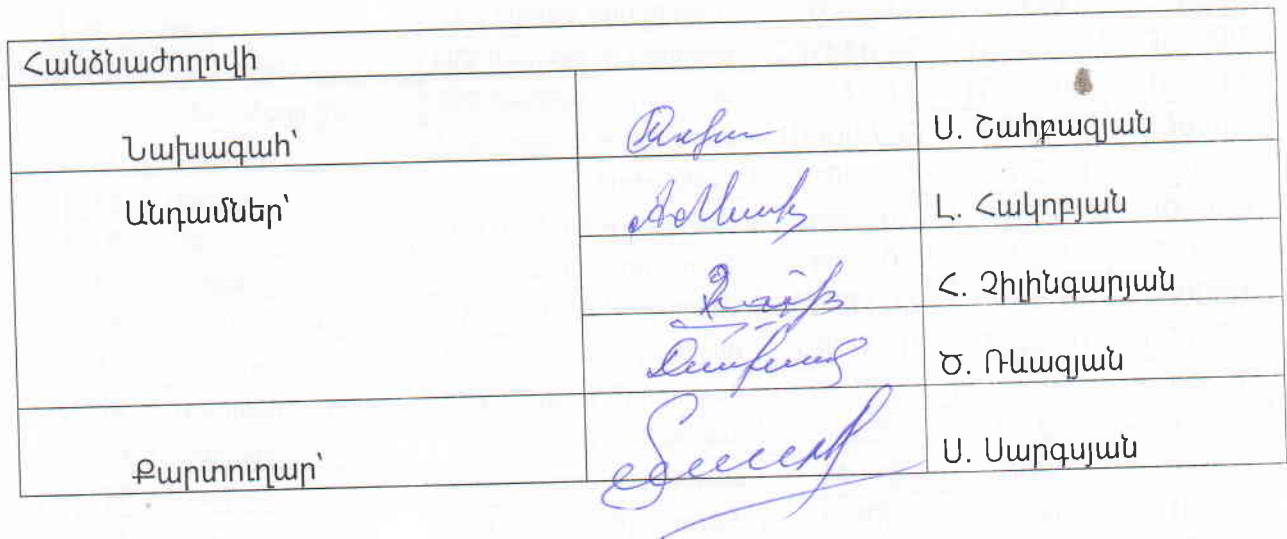 Հանձնաժողովի
Նախագահ՝ Ս. Շահբազյան
Անդամներ՝ Լ. Հակոբյան
Հ. Չիլինգարյան
Ծ. Ռևազյան
Քարտուղար՝ Ս. Սարգսյան